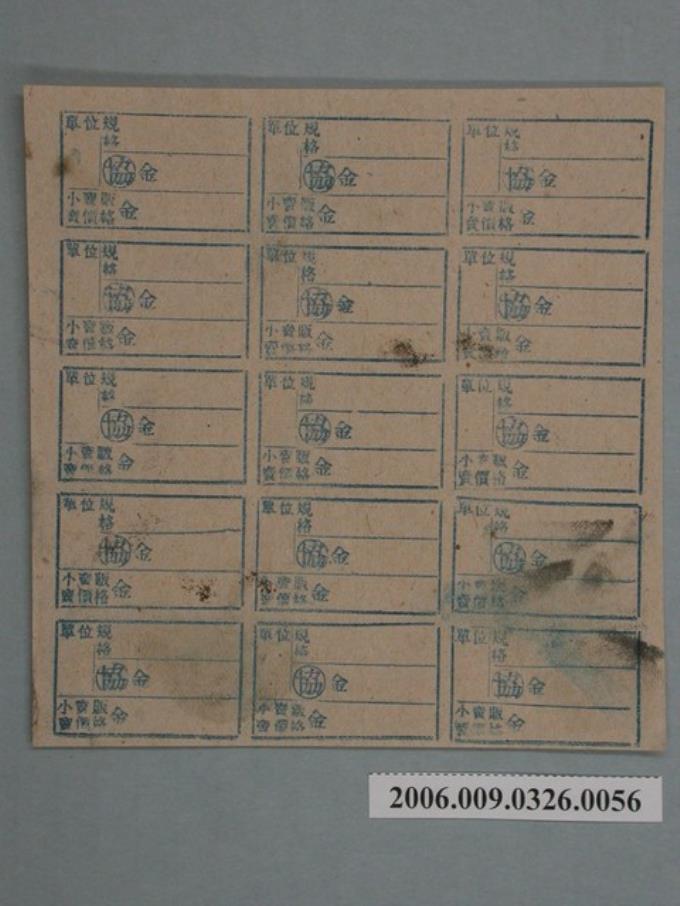 單位規
格
協金
小賣販
賣價格 金
單位規
格
協金
小賣販
賣價格 金
單位規
格
協金
小賣販
賣價格 金
單位規
格
協金
小賣販
賣價格 金
單位規
格
協金
小賣販
賣價格 金
單位規
格
協金
小賣販
賣價格 金
單位規
格
協金
小賣販
賣價格 金
單位規
格
協金
小賣販
賣價格 金
單位規
格
協金
小賣販
賣價格 金
單位規
格
協金
小賣販
賣價格 金
單位規
格
協金
小賣販
賣價格 金
單位規
格
協金
小賣販
賣價格 金
單位規
格
協金
小賣販
賣價格 金
單位規
格
協金
小賣販
賣價格 金
單位規
格
協金
小賣販
賣價格 金
2006.009.0326.0056